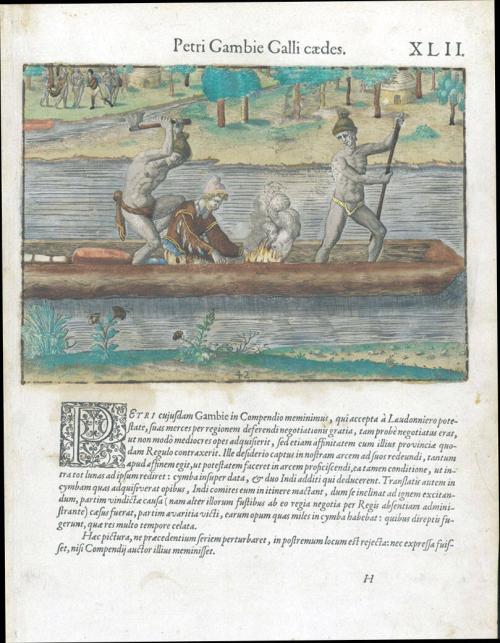 Petri Gambie Galli cædes. XLII.
42
PETRI cujusdam Gambie in Compendio meminimus, qui accepta à Laudonniero pote-
state, suas merces per regionem deferendi negotiationis gratia, tam probè negotiatus erat,
ut non modò mediocres opes adquisierit, sed etiam affinitatem cum illius provinciæ quo-
dam Regulo contraxerit. Ille desiderio captus in nostram arcem ad suos redeundi, tantum
apud affinem egit, ut potestatem faceret in arcem proficiscendi, ea tamen conditione, ut in-
tra tot lunas ad ipsum rediret: cymba insuper data, & duo Indi additi qui deducerent. Translatis autem in
cymbam quas adquisiverat opibus, Indi comites eum in itinere mactant, dum se inclinat ad ignem excitan-
dum, partim vindictæ causa (nam alter illorum fustibus ab eo regia negotia per Regis absentiam admini-
strante) cæsus fuerat, partim avaritia victi, earum opum quas miles in cymba habebat: quibus direptis fu-
gerunt, qua res multo tempore celata.
Hæc pictura, ne præcedentium seriem perturbaret, in postremum locum est rejecta: nec expressa fuis-
set, nisi Compendij auctor illius meminisset.
H